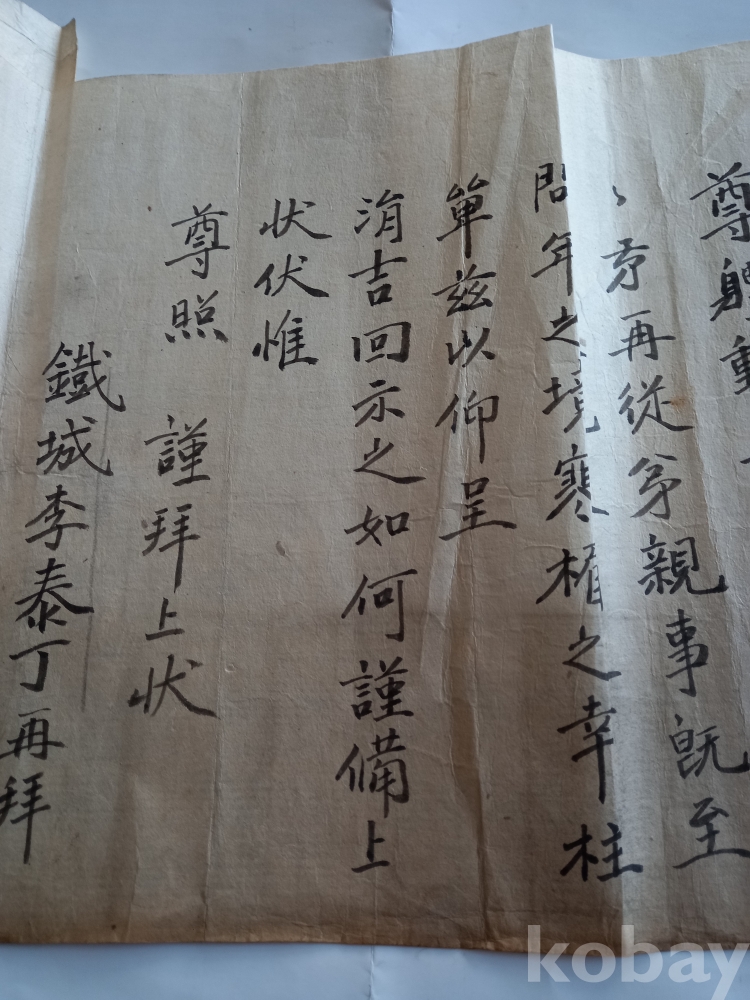 尊體動
弟再從弟親事旣至
問年之境寒楣之幸柱
單玆以仰呈
涓吉回示之如何謹備上
狀伏惟
尊照 謹拜上狀
鐵城李泰丁再拜
kobay